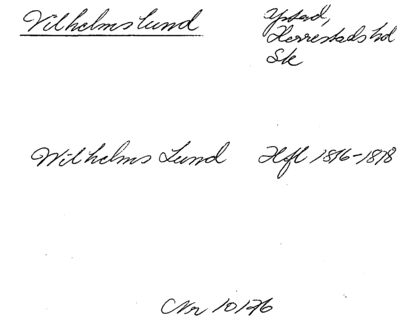 Vilhelmslund Ystad,
Herrestads hd
Sk
Wilhelms Lund Hfl 1876-1878
Nr 10126